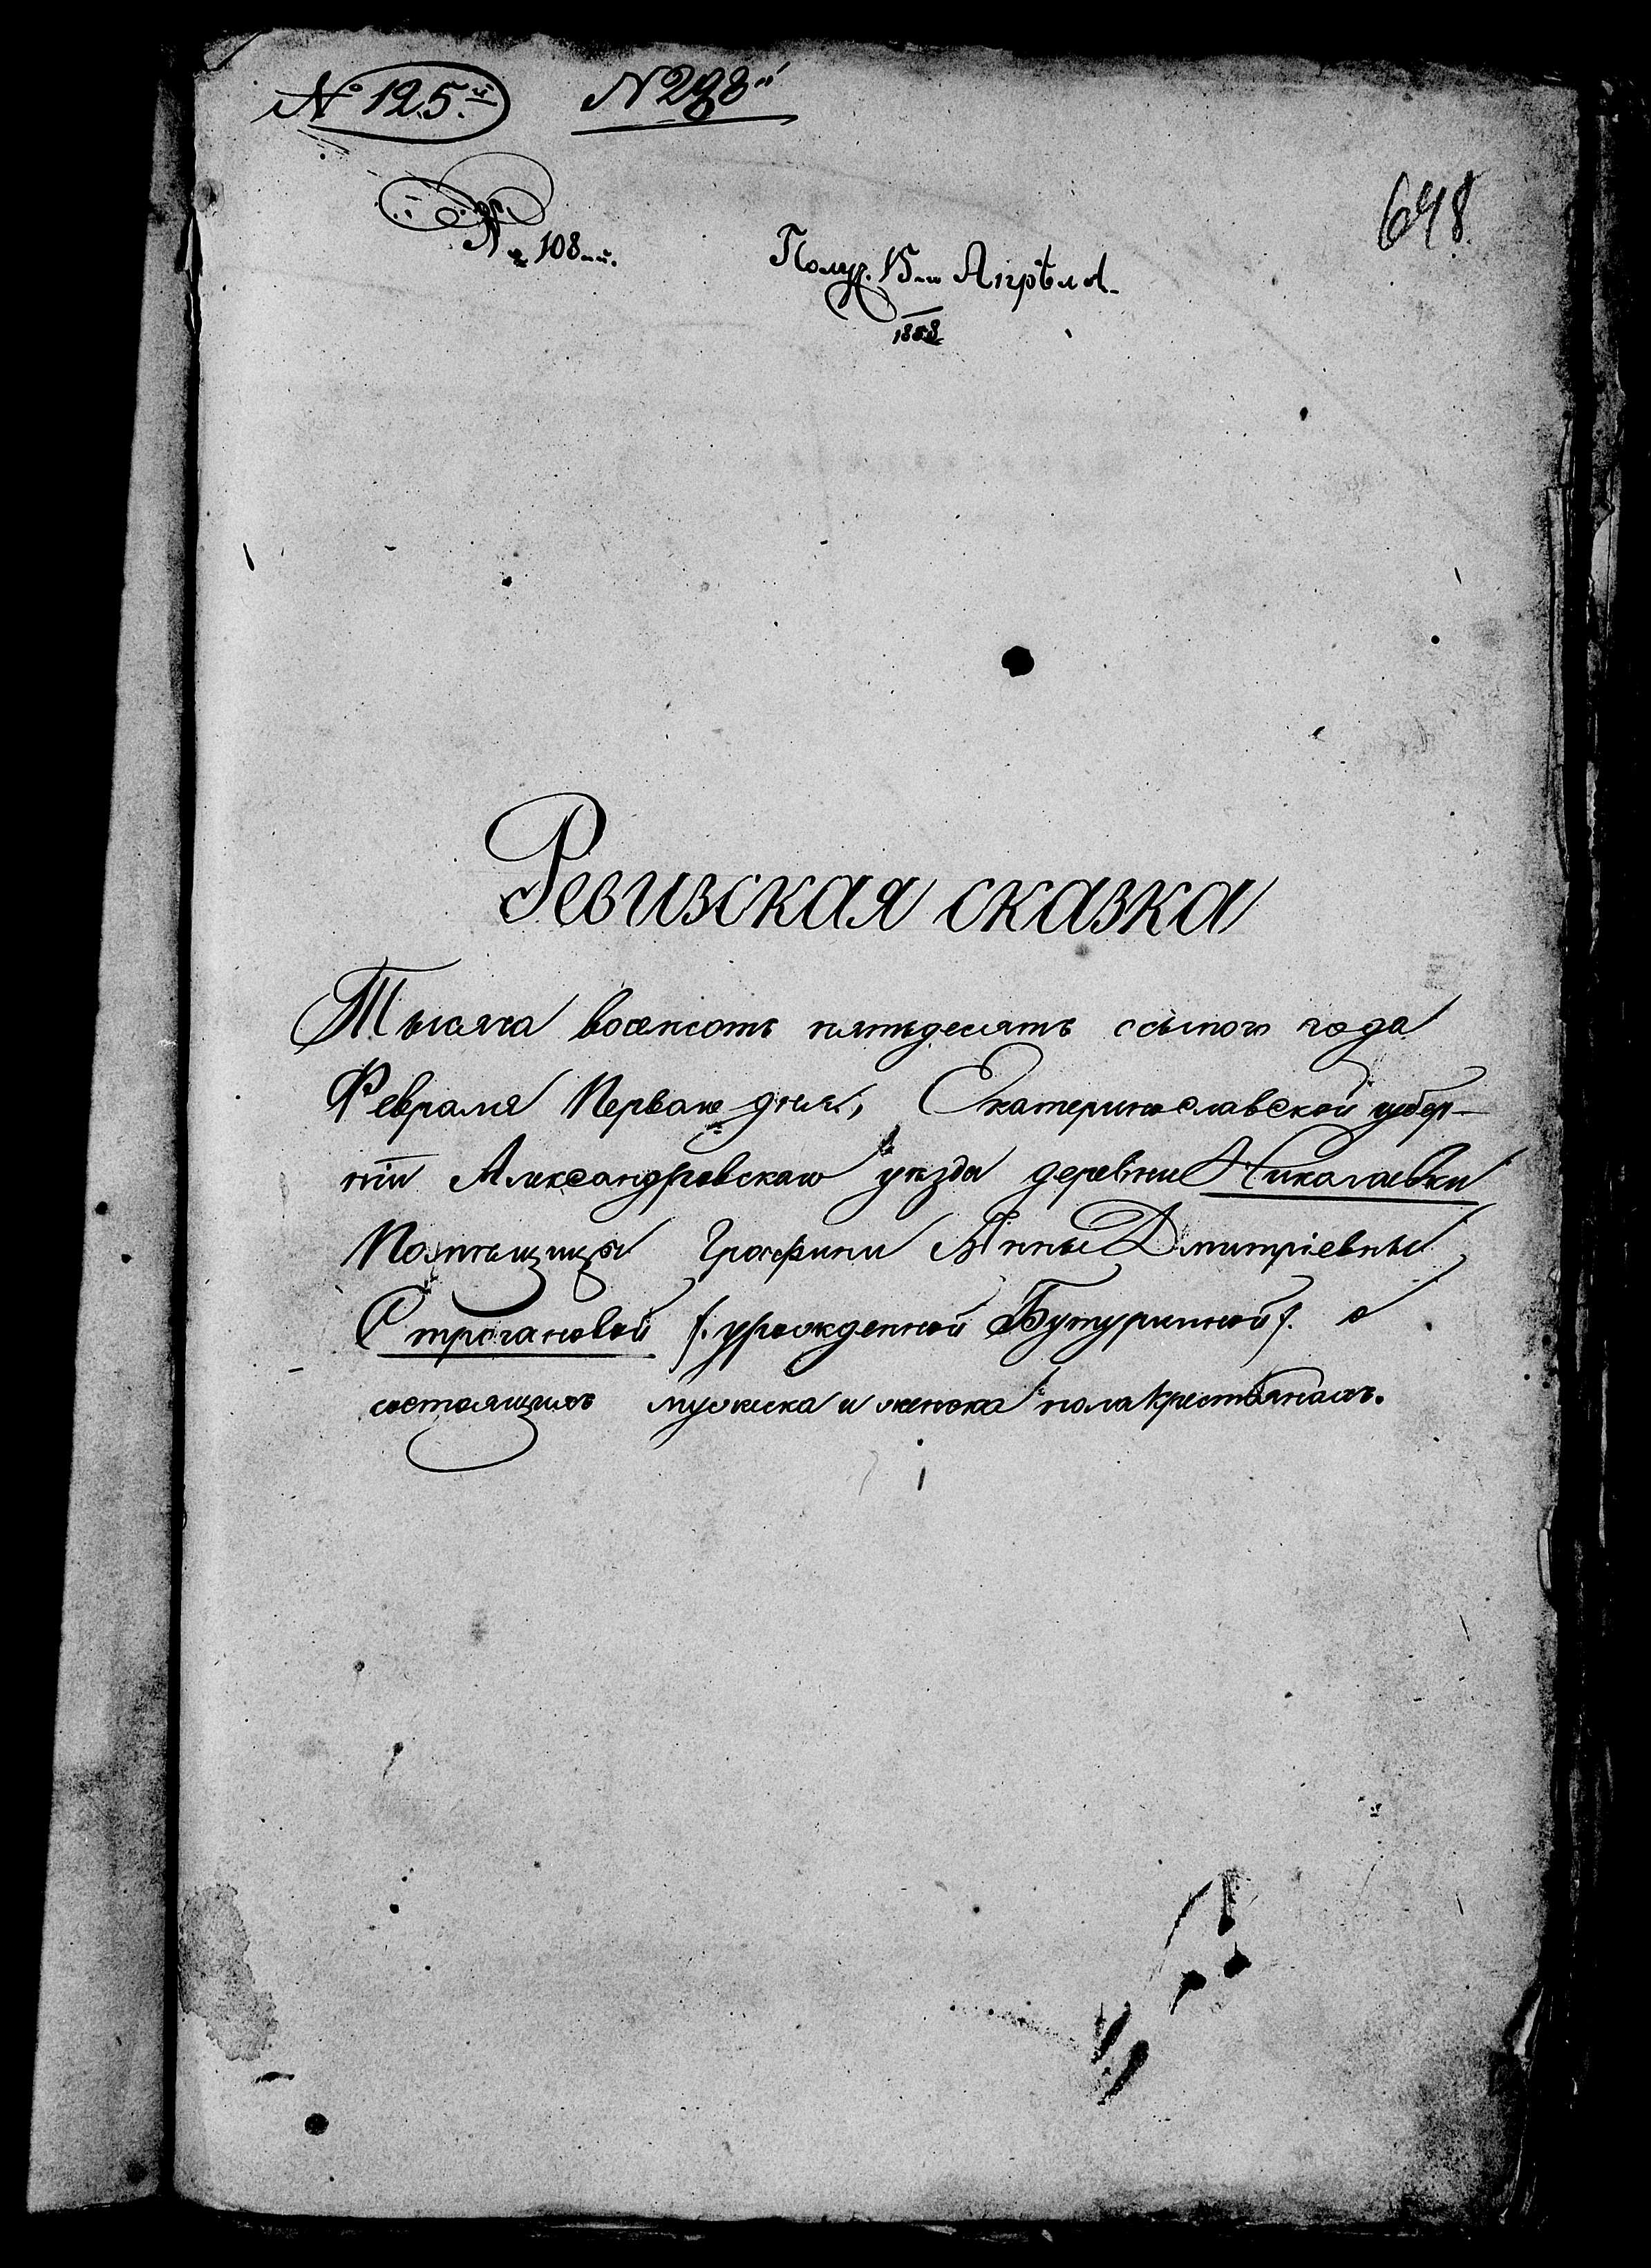 № 125й
N 298й
648
№ 108й.
Получ. 15го Апрѣля
1858
Ревизская сказка
Тысяча восемсотъ пятьдесятъ осьмого года
Февраля Перваго дня, Екатеринославской губер-
ніи Александровскаго уѣзда деревни Николаевки
Помѣщицы Графини Анны Дмитріевны
Строгановой /:урожденной Бутурлиной:/ о
состоящихъ мужеска и женска пола крестьянахъ.